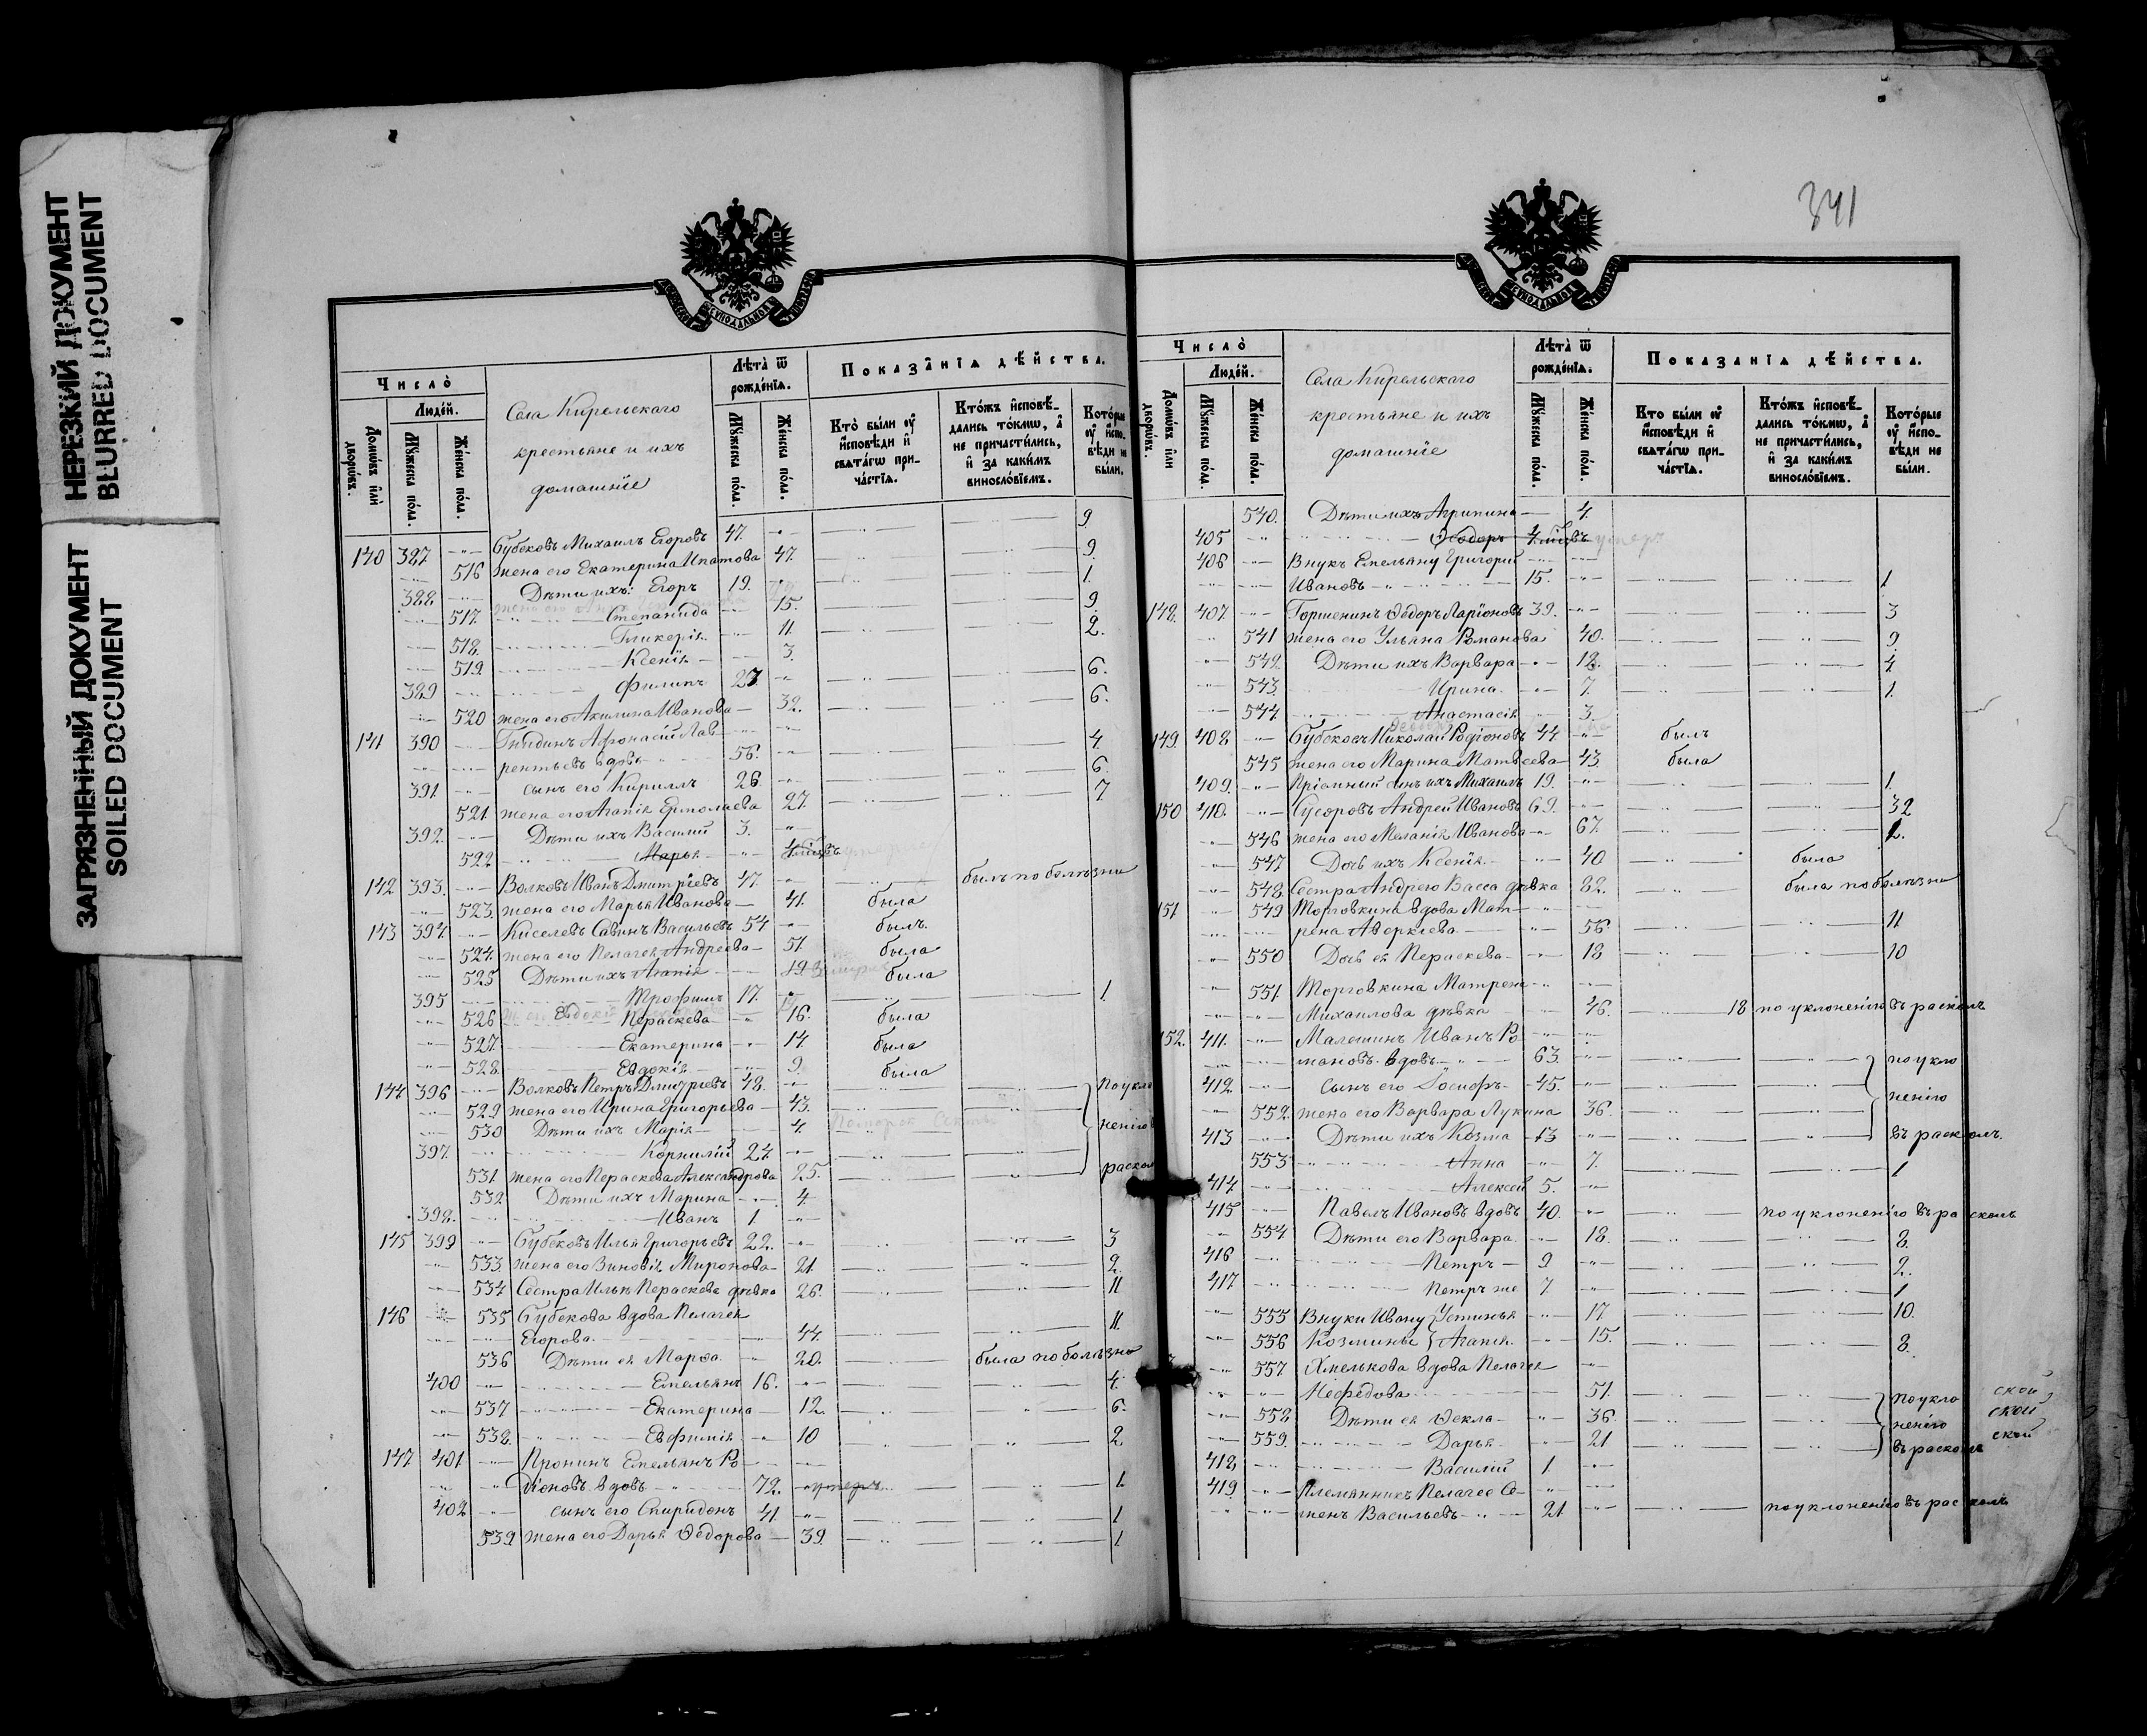 НЕРЕЗКИЙ ДОКУМЕНТ
BLURRED DOCUMENT
ЗАГРЯЗНЕННЫЙ ДОКУМЕНТ
SOILED DOCUMENT
Число̀
Людей.
Домѡвъ или дворѡвъ.
Мꙋжеска пола.
Женска пола.
Села Кирельскаго
крестьяне и ихъ
домашніе
Лѣта ѿ рожденїѧ.
Мꙋжеска пола.
Женска пола.
Показанїѧ дѣйства.
Кто были ѹ исповѣди и свѧтагѡ причастїѧ.
Ктожъ исповѣдались токмѡ, а не причастились, и за какимъ винословїемъ.
Которые ѹ исповѣди не были.
140 387 Губековъ Михаилъ Егоровъ 47. 9
516 жена его Екатерина Ипатова 47. 9.
388 Дѣти ихъ: Егоръ 19. 1.
517. Степанида 15. 9
518. Гликерія 11. 2.
519. Ксенія 3.
389 Филипъ 27. 6.
520 жена его Акилина Иванова 32. 6.
141 390 Гнидинъ Афонасій Лав-
рентьевъ вдовъ 56. 4.
391. сынъ его Кириллъ 26 6.
521. жена его Агапія Ермолаева 27. 7
392. Дѣти ихъ Василий 3.
522 Марья
142 393. Волковъ Иванъ Дмитріевъ 47. былъ по болѣзни
523. жена его Марья Иванова 41. была
143 394. Киселевъ Савинъ Васильевъ 54 былъ.
524. жена его Пелагея Андреева 51. была
525 Дѣти ихъ Агапія 19 была
395 Трофимъ 17. 1.
526 Пераскева 16. была
527. Екатерина 14 была
528. Евдокія 9. была
144 396 Волковъ Петръ Дмитріевъ 48. по укло
529 жена его Ирина Григорьева 43.
530 Дѣти ихъ Марія 4. неніго в
397. Корнилій 24.
531. жена его Пераскева Александрова 25. раскол
532. Дѣти ихъ Марина 4.
398. Иванъ 1.
145 399 Губековъ Илья Григорьевъ 22. 3
533. жена его Зиновія Миронова 21. 2.
534 Сестра Ильи Пераскева дѣвка 26. 11
146 535 Губекова вдова Пелагея
Егорова 44. 11.
536 Дѣти ея Марфа 20. была по болѣзни
400 Емельянъ 16. 4.
537 Екатерина 12. 6.
538. Евфимія 10 2.
147 401 Пронинъ Емельянъ Ро-
діоновъ вдовъ 72. умеръ 1.
402 сынъ его Спиридонъ 41 1
539. жена его Дарья Ѳедорова 39. 1.
341
Число̀
Людей.
Домѡвъ или дворѡвъ.
Мꙋжеска пола.
Женска пола.
Села Кирельскаго
крестьяне и ихъ
домашніе
Лѣта ѿ рожденїѧ.
Мꙋжеска пола.
Женска пола.
Показанїѧ дѣйства.
Кто были ѹ исповѣди и свѧтагѡ причастїѧ.
Ктожъ исповѣдались токмѡ, а не причастились, и за какимъ винословїемъ.
Которые ѹ исповѣди не были.
540. Дѣти ихъ Агрипина 4.
405 Ѳеодоръ умеръ
406 Внукъ Емельяну Григорій
Ивановъ 15. 1.
148. 407. Горшенинъ Ѳедоръ Ларіоновъ 39. 3
541 жена его Ульяна Романова 40. 9.
542. Дѣти ихъ Варвара 12. 4
543. Ирина 7. 1.
544. Анастасія 3.
149. 408 Губековъ Николай Родіоновъ 44. былъ
545 жена его Марина Матвеева 43. была
409. Пріемный сынъ ихъ Михаилъ 19. 1.
150 410. Сусоровъ Андрей Ивановъ 69. 32
546 жена его Меланія Иванова 67. 2.
547 Дочь ихъ Ксенія 40 была
548. Сестра Андрею Васса дѣвка 82. была по болѣзни
151 549 Торговкина вдова Мат-
рена Аверкіева 56. 11
550 Дочь ея Пераскева 18 10
551. Торговкина Матрена
Михайлова дѣвка 46. 18 по уклоненіго въ расколъ
152. 411. Малешинъ Иванъ Ро-
мановъ вдовъ 63. по укло
412. сынъ его Іосифъ 45. неніго
552. жена его Варвара Лукина 36.
413 Дѣти ихъ Козма 13 въ расколъ.
553 Анна 7. 1
414 Алексей 5.
415 Павелъ Ивановъ вдовъ 40. по уклоненіго въ расколъ
554 Дѣти его Варвара 18. 8.
416 Петръ 9 2.
417 Петръ же 7 1
555 Внуки Ивану Устинья 17 10.
556 Козмины Агапія 15. 8.
557 Хмелькова вдова Пелагея
Нефедова 51. по укло ской
558 Дѣти ея Ѳекла 36. неніго ской
559. Дарья 21 въ расколъ ской
418. Василій 1.
419. Племянникъ Пелагее Се-
менъ Васильевъ 21. по уклоненіго въ расколъ